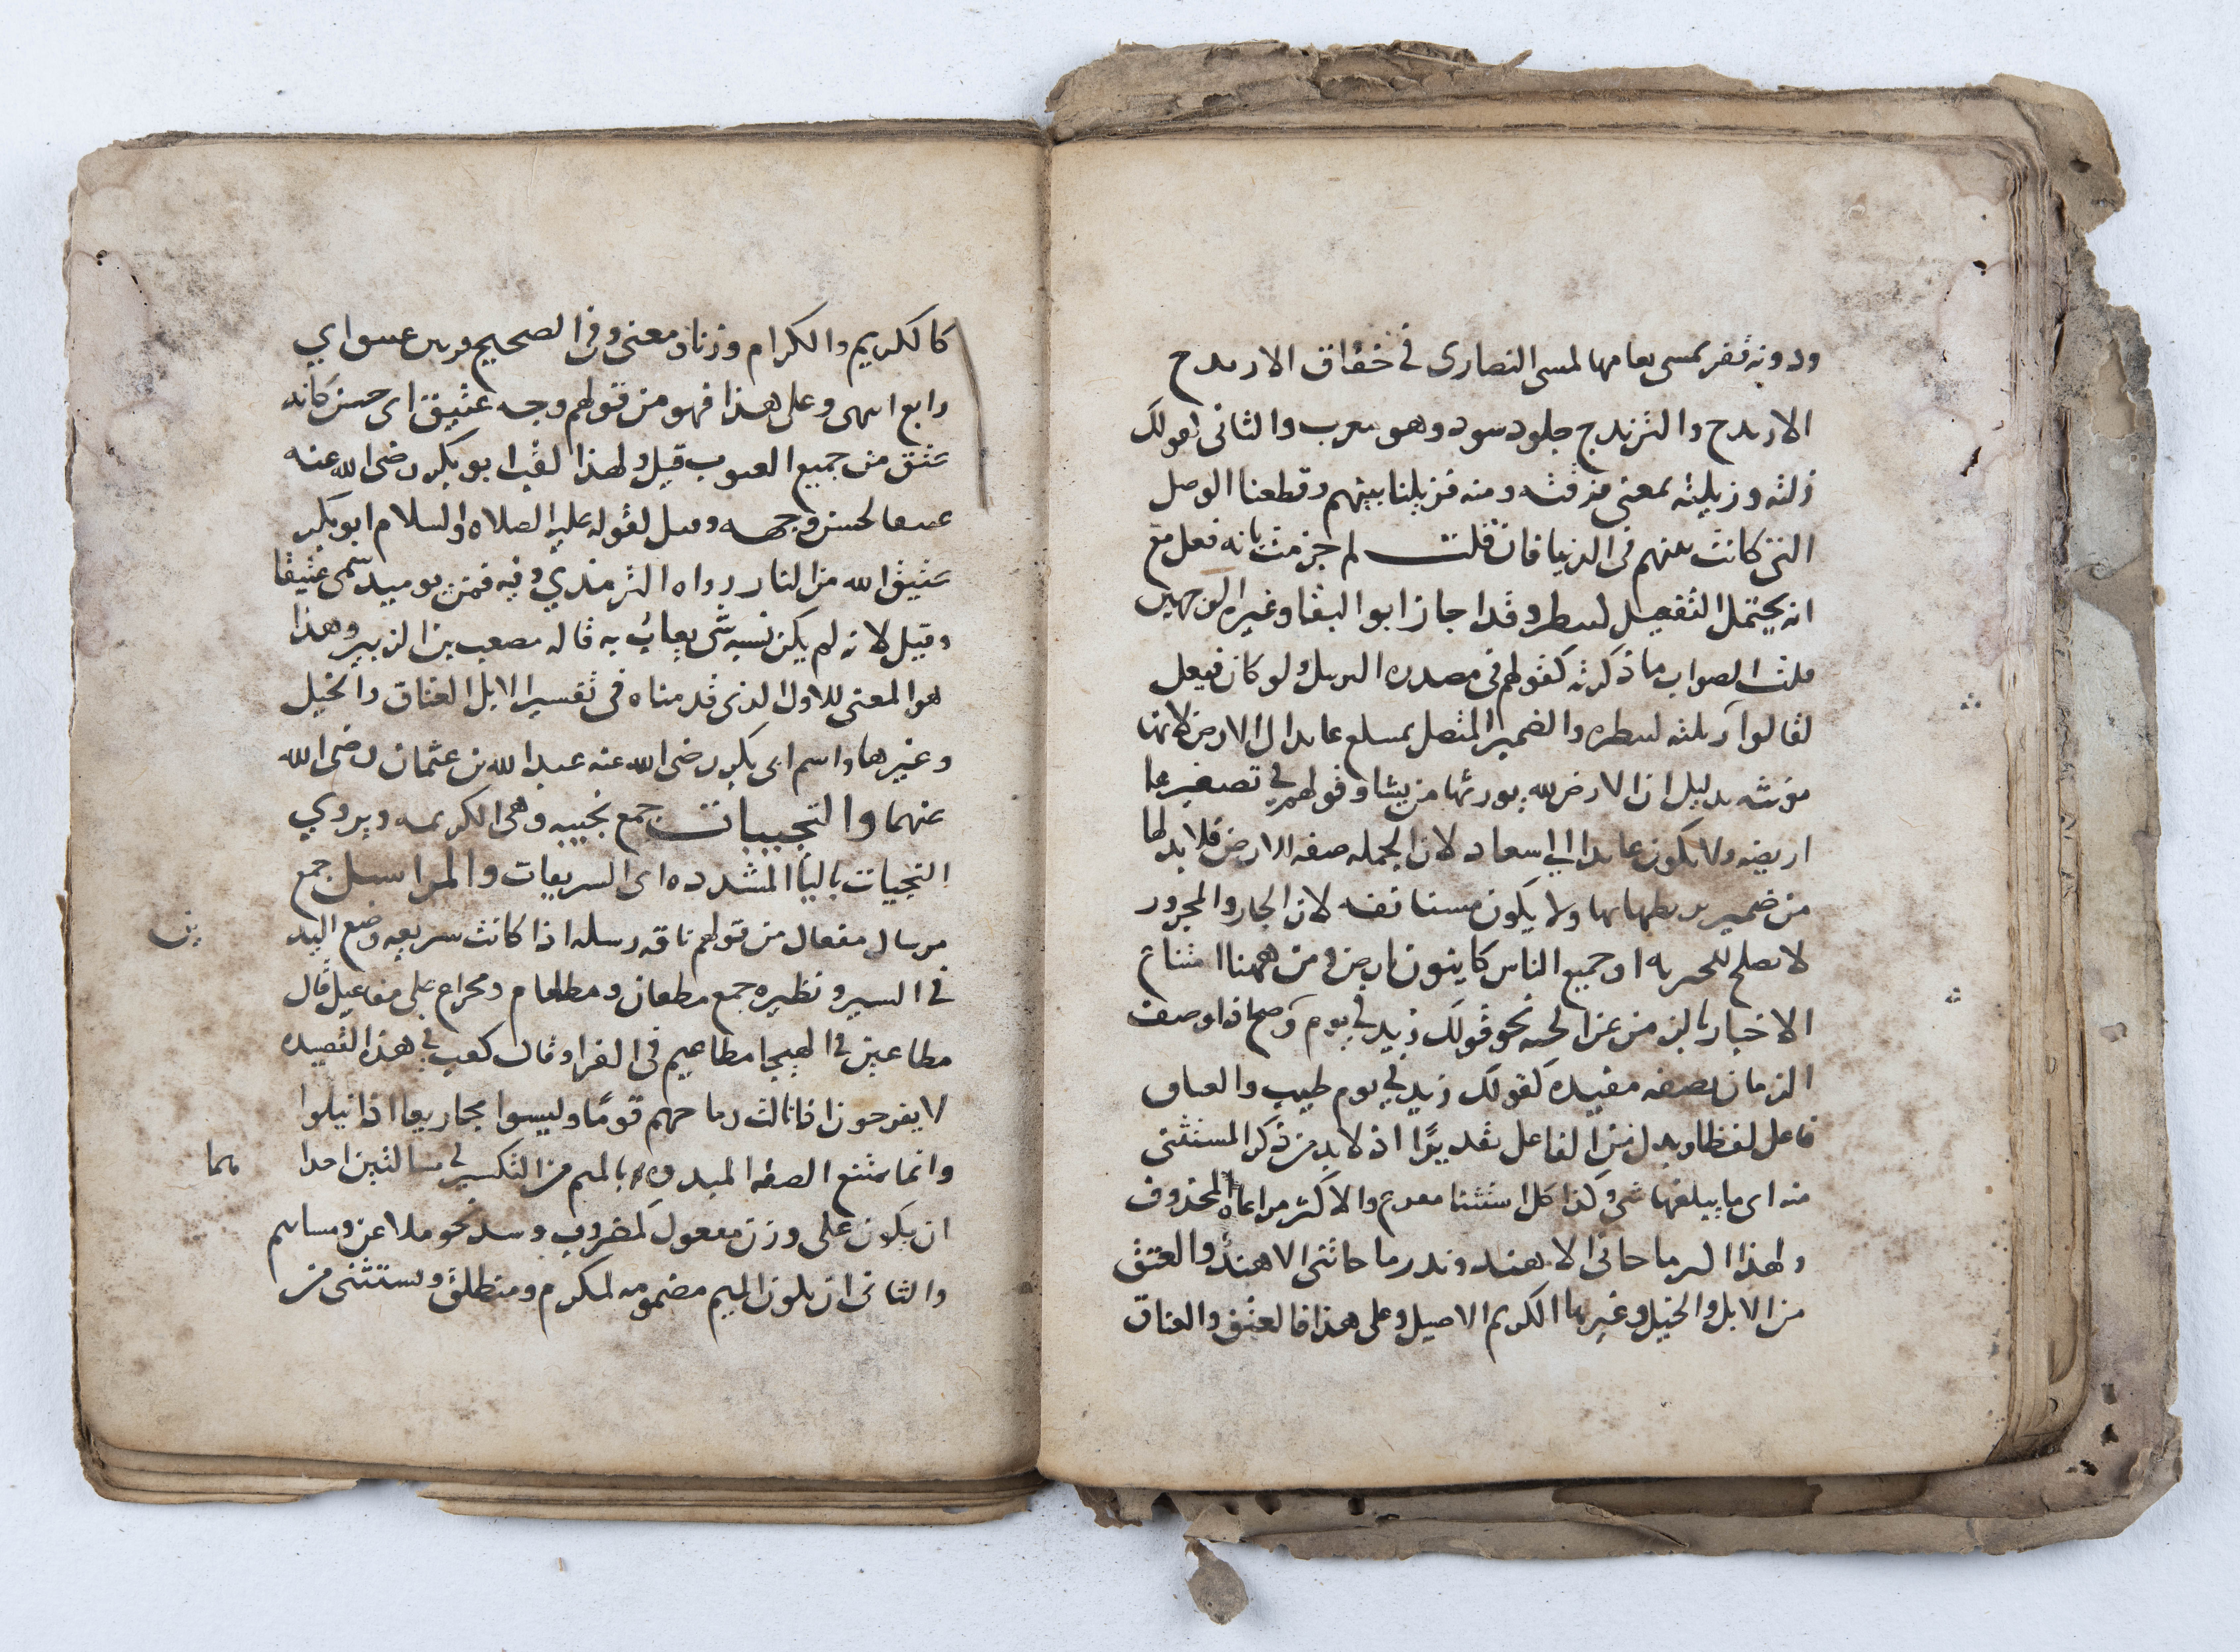 ودونه قفر تمسي نعامها كمسي النصارى في خفاف الارندج
الارندج والترندج جلود سود وهو معرب والثاني قولك
زلته وزيلته بمعنى فرقته ومنه فزيلنا بينهم وقطعنا الوصل
التي كانت بينهم في الدنيا فان قلت لم جزمت بانه فعل مع
انه يحتمل التفعيل كبيطر وقد اجاز ابو البقا وغيره الوجهين
قلت الصواب ما ذكرته كقولهم في مصدره التزييل ولو كان فيعل
لقالوا زيلته كبيطره والضمير المتصل بمبلغ عايد الى الارض لانها
مونثه بدليل ان الارض لله يورثها من يشا وقولهم في تصغيرها
اريضه ولا يكون عايدا الى سعاد لان الجمله صفه الارض فلا بد لها
من ضمير يربطها بها ولا يكون مستانفه لان الجار والمجرور
لا يصلح للخبريه اذ جميع الناس كاينون بارض ومن ههنا امتناع
الاخبار بالزمن عن الجثه نحو قولك زيد في يوم وصح اذا وصف
الزمان بصفه مفيده كقولك زيد في يوم طيب والعتاق
فاعل لفظا وبدل من الفاعل تقديرًا اذ لا بد من ذكر المستثنى
منه اى ما يبلغها شي وكذا كل استثنا مفرغ والاكثر مراعاة المحذوف
ولهذا كثر ما جاني الا هند وندر ما جاتني الا هند والعتق
من الابل والخيل وغيرها الكريم الاصيل وعلى هذا فالعتق والعتاق
كالكريم والكرام وزنا ومعنى وفي الصحيح فرس عتيق اي
رابع اسهى وعلى هذا فهو من قولهم وجه عتيق اى حسن كانه
عتق من جميع العيوب قيل ولهذا لقب ابو بكر رضى الله عنه
عتيقا لحسن وجهه وقيل لقوله عليه الصلاه والسلام ابو بكر
عتيق الله من النار رواه الترمذي وفيه فمن يوميد سمى عتيقا
وقيل لانه لم يكن نسبه شي يعاب به قاله مصعب بن الزبير وهذا
هو المعنى للاول الذى قدمناه في تفسير الابل العتاق والخيل
وغيرها واسم ابى بكر رضى الله عنه عبد الله بن عثمان رضى الله
عنهما والنجيبات جمع نجيبه وهى الكريمه ويروي
النجيات باليا المشدده اى السريعات والمراسيل جمع
مرسال مفعال من قولهم ناقه رسله اذا كانت سريعه وضع اليد
ين
في السير ونظيره جمع مطعان ومطعام ومحراج على مفاعيل قال
مطاعين في الهيجا مطاعيم في القرا وقال كعب في هذه القصيده
لا يفرحون اذا نالت رماحهم قومًا وليسوا مجازيعا اذا نيلوا
وانما يمتنع الصفه المبدوه بالميم من التكسير في مسالتين احدا
هما
ان يكون على وزن مفعول كمضروب وشد نحو ملاعن ومشايم
والثاني ان يكون الميم مضمومه كمكرم ومنطلق ويستثنى من